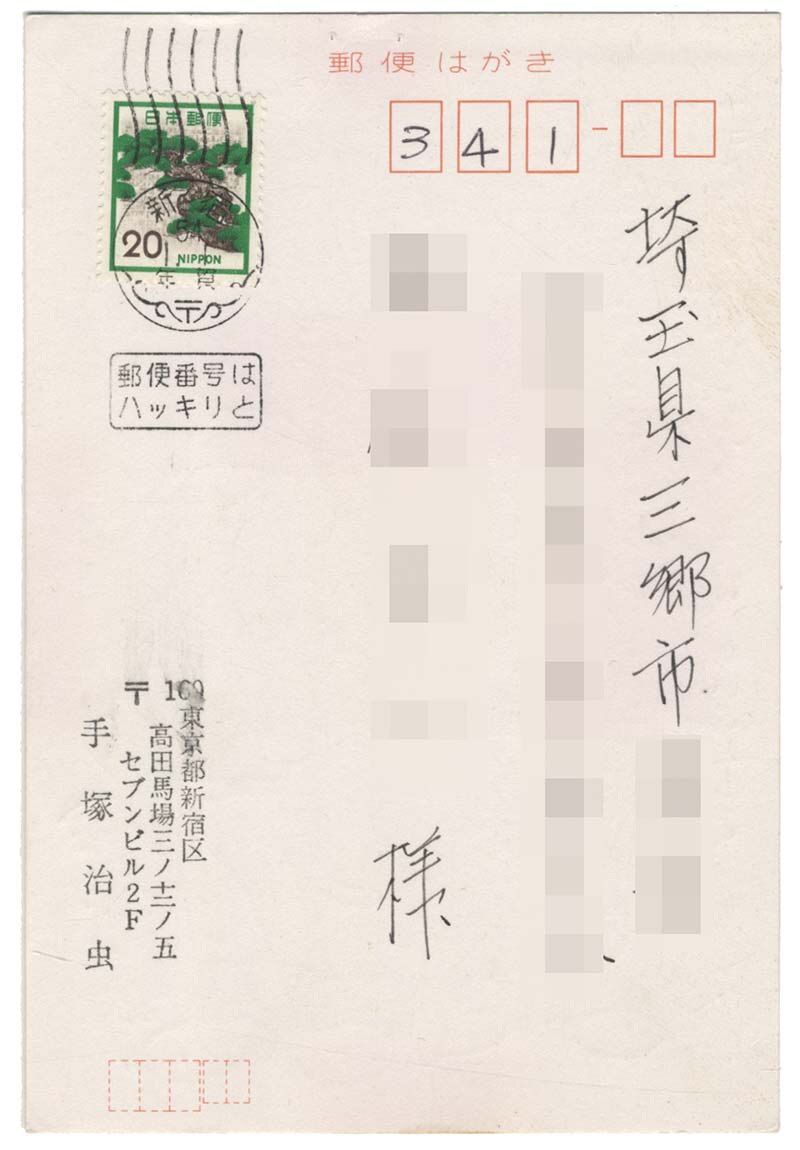 郵便はがき
341
日本郵便
20
NIPPON
新宿
54
年賀
〒
郵便番号は
ハッキリと
埼玉県三郷市
様
〒160
東京都新宿区
高田馬場三ノ十三ノ五
セブンビル2F
手塚治虫